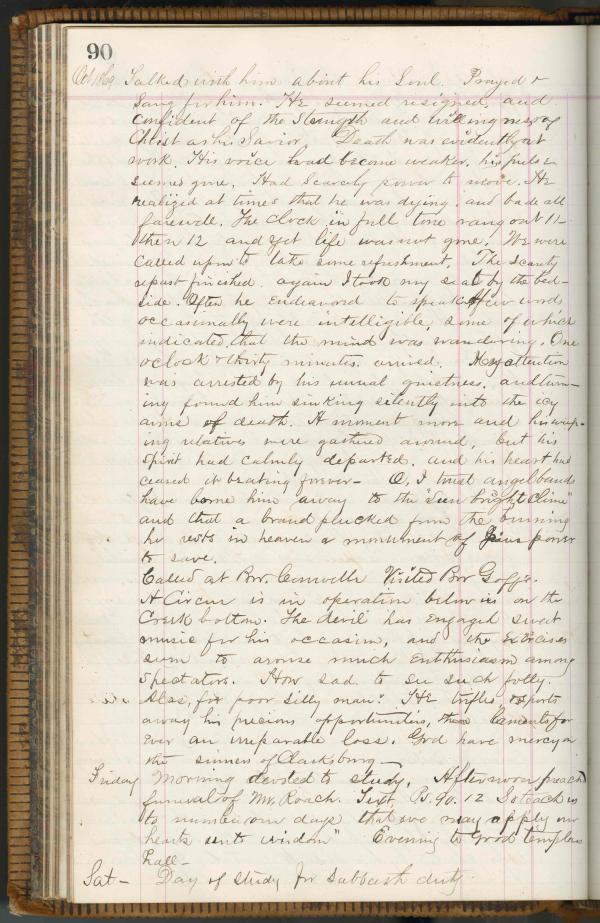 90
Oct 1869 Talked with him about his Soul. Prayed &
Sang for him. He seemed resigned, and
confident of the Strength and willingness of
Christ as his Savior. Death was evidently at
work. His voice had become weaker, his pulse
seemed gone. Had Scarcely power to move. He
realized at times that he was dying. and bade all
farewell. The clock in full tone rang out 11-
then 12 and yet life was not gone. We were
called upon to take some refreshment. The scanty
repast finished. again I took my seat by the bed-
side. Often he endeavored to speak. A few words
occasionally were intelligible, some of which
indicated that the mind was wandering. One
oclock & thirty minutes arrived. My attention
was arrested by his unusual quietness. and turn-
ing found him sinking silently into the icy
arms of death. A moment more and his weep-
ing relatives were gathered around, but his
Spirit had calmly departed. and his heart had
ceased its beating forever- O, I trust angel bands
have borne him away to the "Sun bright Clime"
and that a brand plucked from the burning
he rests in heaven a monument of Jesus power
to save.
Called at Bro. Visited Bro Goff's.
A Circus is in operation below us on the
Creek bottom. The devil has engaged sweet
music for his occasion, and the exercises
seem to arouse much Enthusiasm among
Spectators. How sad to see such folly.
Alas, for poor silly man! He trifles & sports
away his precious opportunities, then laments for
ever an irreparable loss. God have mercy on
the sinners of Clarksburg-
Friday Morning devoted to study. Afternoon preach
funeral of Mr. Roach. Text. Ps. 90. 12 So teach us
to number our days that we may apply our
hearts unto wisdom" Evening to Good templars
hall-
Sat- Day of Study for Sabbath duty.